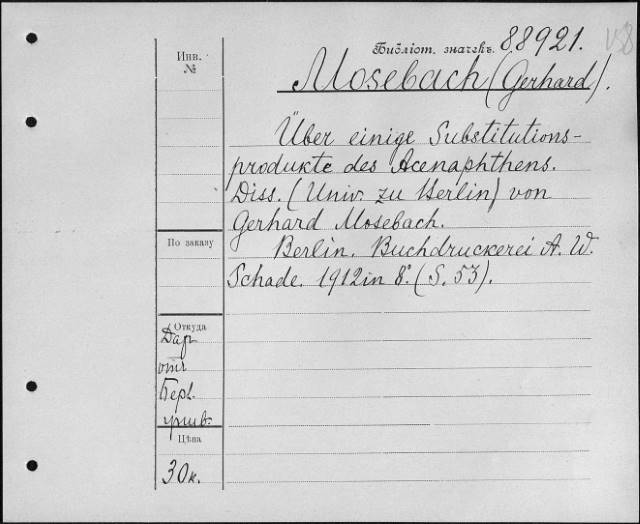 Инв.
№
Библіот. значекъ. 88921.
Mosebach (Gerhard).
Über einige Substitutions-
produkte des Acenaphthens.
Diss. (Univ. zu Berlin) von
Gerhard Mosebach.
Berlin. Buchdruckerei A. W.
Schade. 1912 in 8°. (S. 53).
По заказу
Откуда
Дар
отъ
Берл.
унив.
Цѣна
30 к.